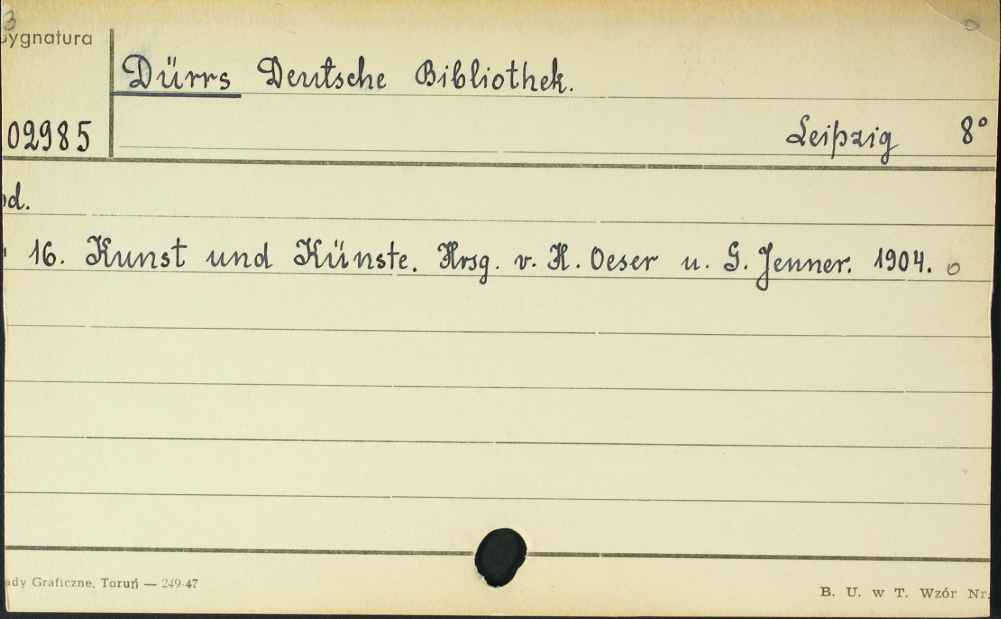 3
Sygnatura
Dürrs Deutsche Bibliothek.
02985
Leipzig 8°
od.
16. Kunst und Künste. Hrsg. v. H. Oeser u. G. Jenner. 1904. o
ady Graficzne, Toruń — 249-47
B. U. w T. Wzór Nr.